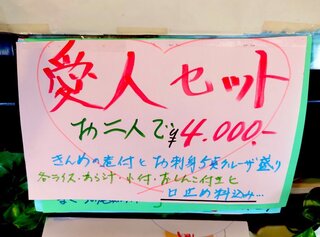 愛人セット
お二人で¥4.000.-
きんめの煮付とお刺身5点クレーザ盛り
各ライス・あら汁・小付・おしんこ付きと
口止め料込み…